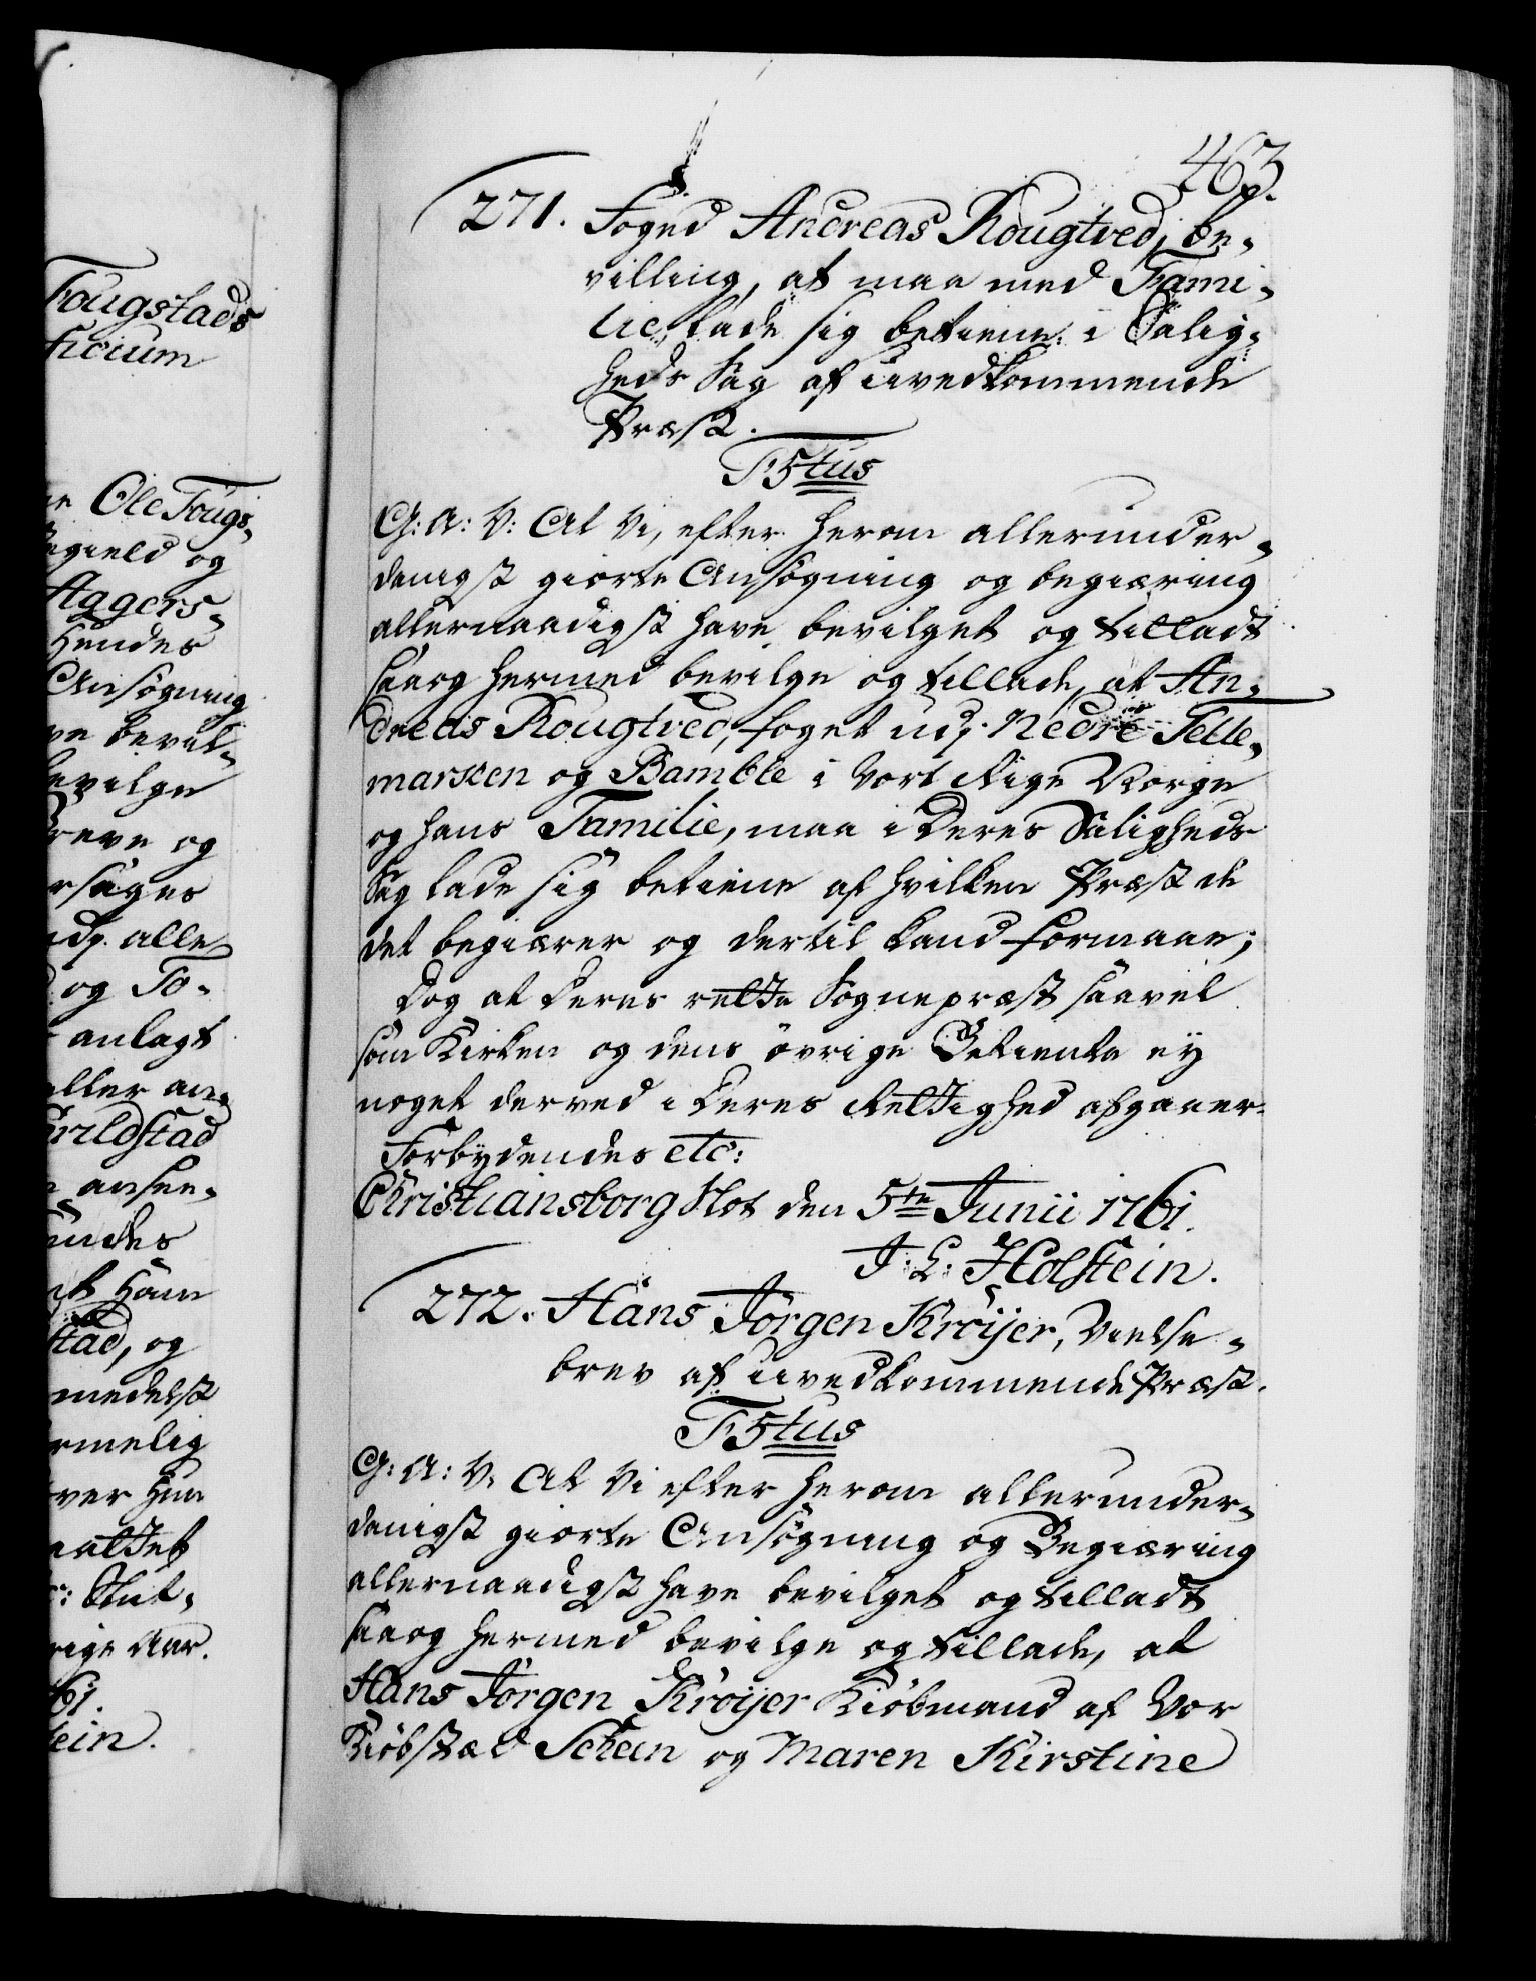 463.
271. Foged Andreas Rougtved, be-
villing, at maa med Fami-
lie lade sig betiene i Salig-
heds Sag af uvedkommende
Præst.
F5tus
G: A: V: At Vi, efter herom allerunder-
danigst giorte Ansögning og begiæring
allernaadigst have bevilget og tilladt
saa og hermed bevilge og tillade, at An-
dreas Rougtved, foget udj Nedre Telle-
marken og Bamble i Vort Rige Norge
og hans Familie, maa i Deres Saligheds
Sag lade sig betiene af hvilken Præst de
det begiærer og dertil kand formaae;
Dog at deres rette Sognepræst saavel
som Kirken og dens övrige Betiente ey
noget derved i deres Rettighed afgaaer.
Forbydendes etc:
Christiansborg Slot den 5te Junii 1761.
J: L: Holstein.
272. Hans Jörgen Kröijer, Vielse-
brev af uvedkommende Præst.
F5tus
G: A: V: At Vi efter herom allerunder-
danigst giorte Ansögning og Begiæring
allernaadigst have bevilget og tilladt
saa og hermed bevilge og tillade, at
Hans Jörgen Kröijer Kiöbmand af Vor
Kiöbstæd Scheen og Maren Kirstine
Fougstads
ficium
Ole Fougs-
gield og
Aggers-
hendes
Ansögning
bevil-
bevilge
og
alle
og To-
anlagt
eller an-
ansee-
stad, og
medelst
over hun
Aar.